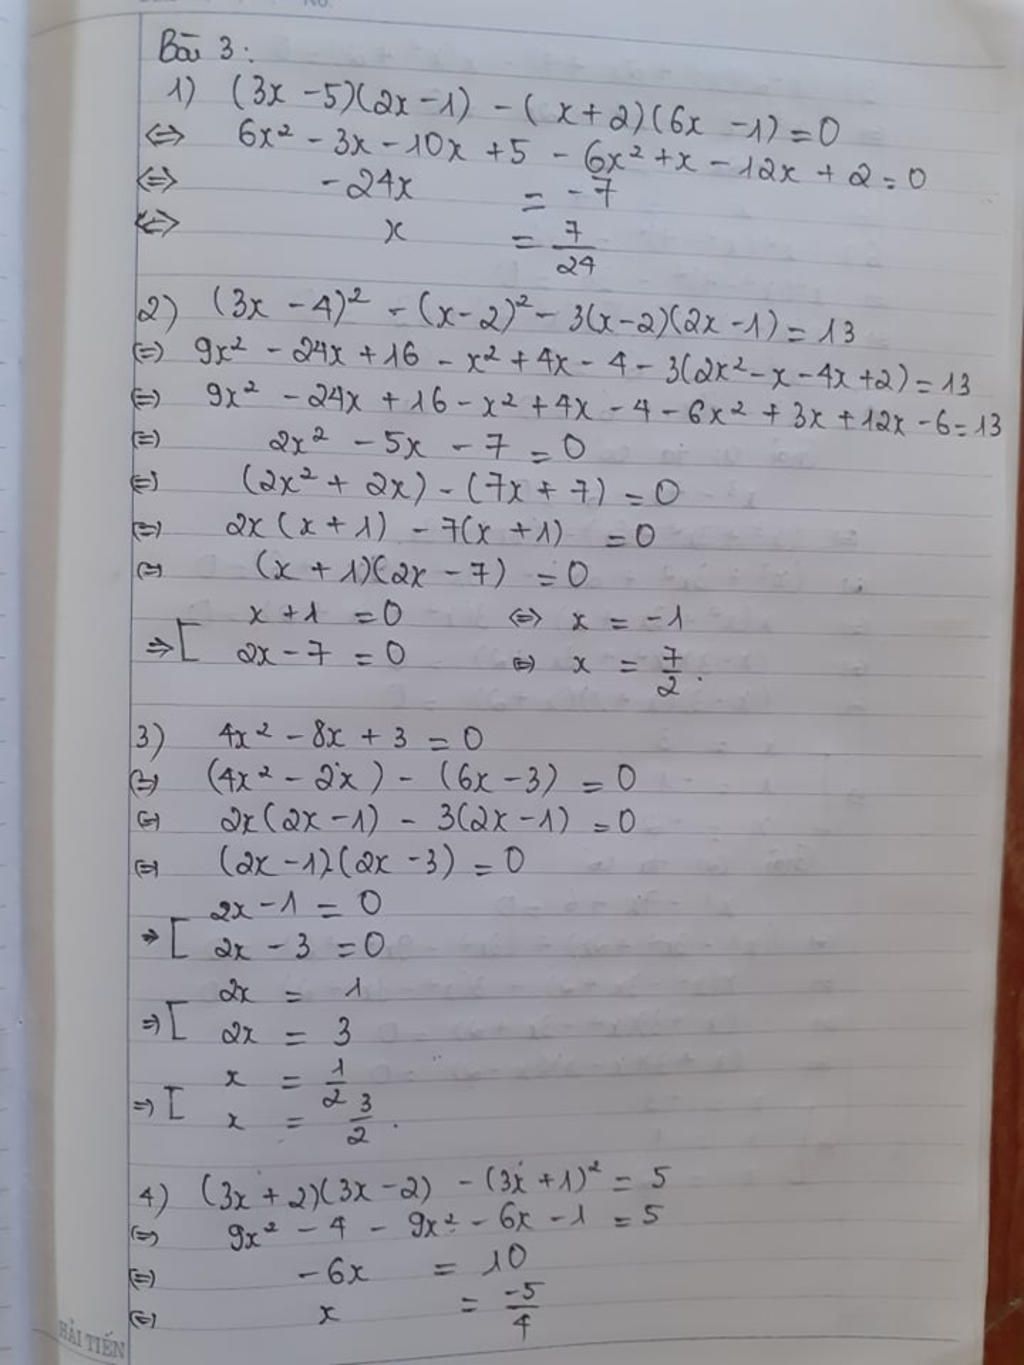 No.
Bài 3:
1) (3x - 5)(2x - 1) - (x + 2)(6x - 1) = 0
⇔ 6x² - 3x - 10x + 5 - 6x² + x - 12x + 2 = 0
⇔ -24x = -7
⇔ x = 7/24
2) (3x - 4)² - (x - 2)² - 3(x - 2)(2x - 1) = 13
⇔ 9x² - 24x + 16 - x² + 4x - 4 - 3(2x² - x - 4x + 2) = 13
⇔ 9x² - 24x + 16 - x² + 4x - 4 - 6x² + 3x + 12x - 6 = 13
⇔ 2x² - 5x - 7 = 0
⇔ (2x² + 2x) - (7x + 7) = 0
⇔ 2x(x + 1) - 7(x + 1) = 0
⇔ (x + 1)(2x - 7) = 0
⇒ [ x + 1 = 0 ⇔ x = -1
2x - 7 = 0 ⇔ x = 7/2.
3) 4x² - 8x + 3 = 0
⇔ (4x² - 2x) - (6x - 3) = 0
⇔ 2x(2x - 1) - 3(2x - 1) = 0
⇔ (2x - 1)(2x - 3) = 0
⇒ [ 2x - 1 = 0
2x - 3 = 0
⇒ [ 2x = 1
2x = 3
⇒ [ x = 1/2
x = 3/2.
4) (3x + 2)(3x - 2) - (3x + 1)² = 5
⇔ 9x² - 4 - 9x² - 6x - 1 = 5
⇔ -6x = 10
⇔ x = -5/4
HẢI TIẾN